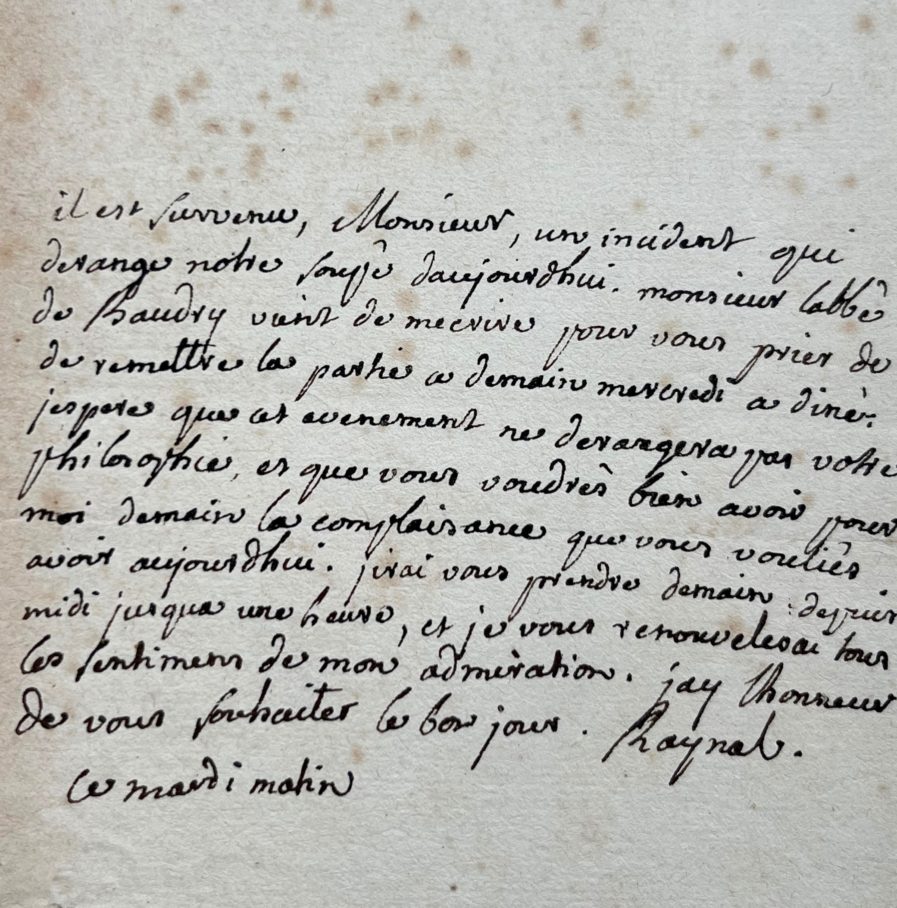 il est survenu, Monsieur, un incident qui
derange notre soupé daujourdhui. monsieur labbé
de Raudry vient de mecrire pour vous prier de
de remettre la partie a demain mercredi a diné.
jespere que cet evenement ne derangera pas votre
philosophie, et que vous voudrés bien avoir pour
moi demain la complaisance que vous vouliés
avoir aujourdhui. jirai vous prendre demain depuis
midi jusqua une heure, et je vous renouvelerai tous
les sentimens de mon admiration. jay lhonneur
de vous souhaiter le bon jour. Raynal.
ce mardi matin